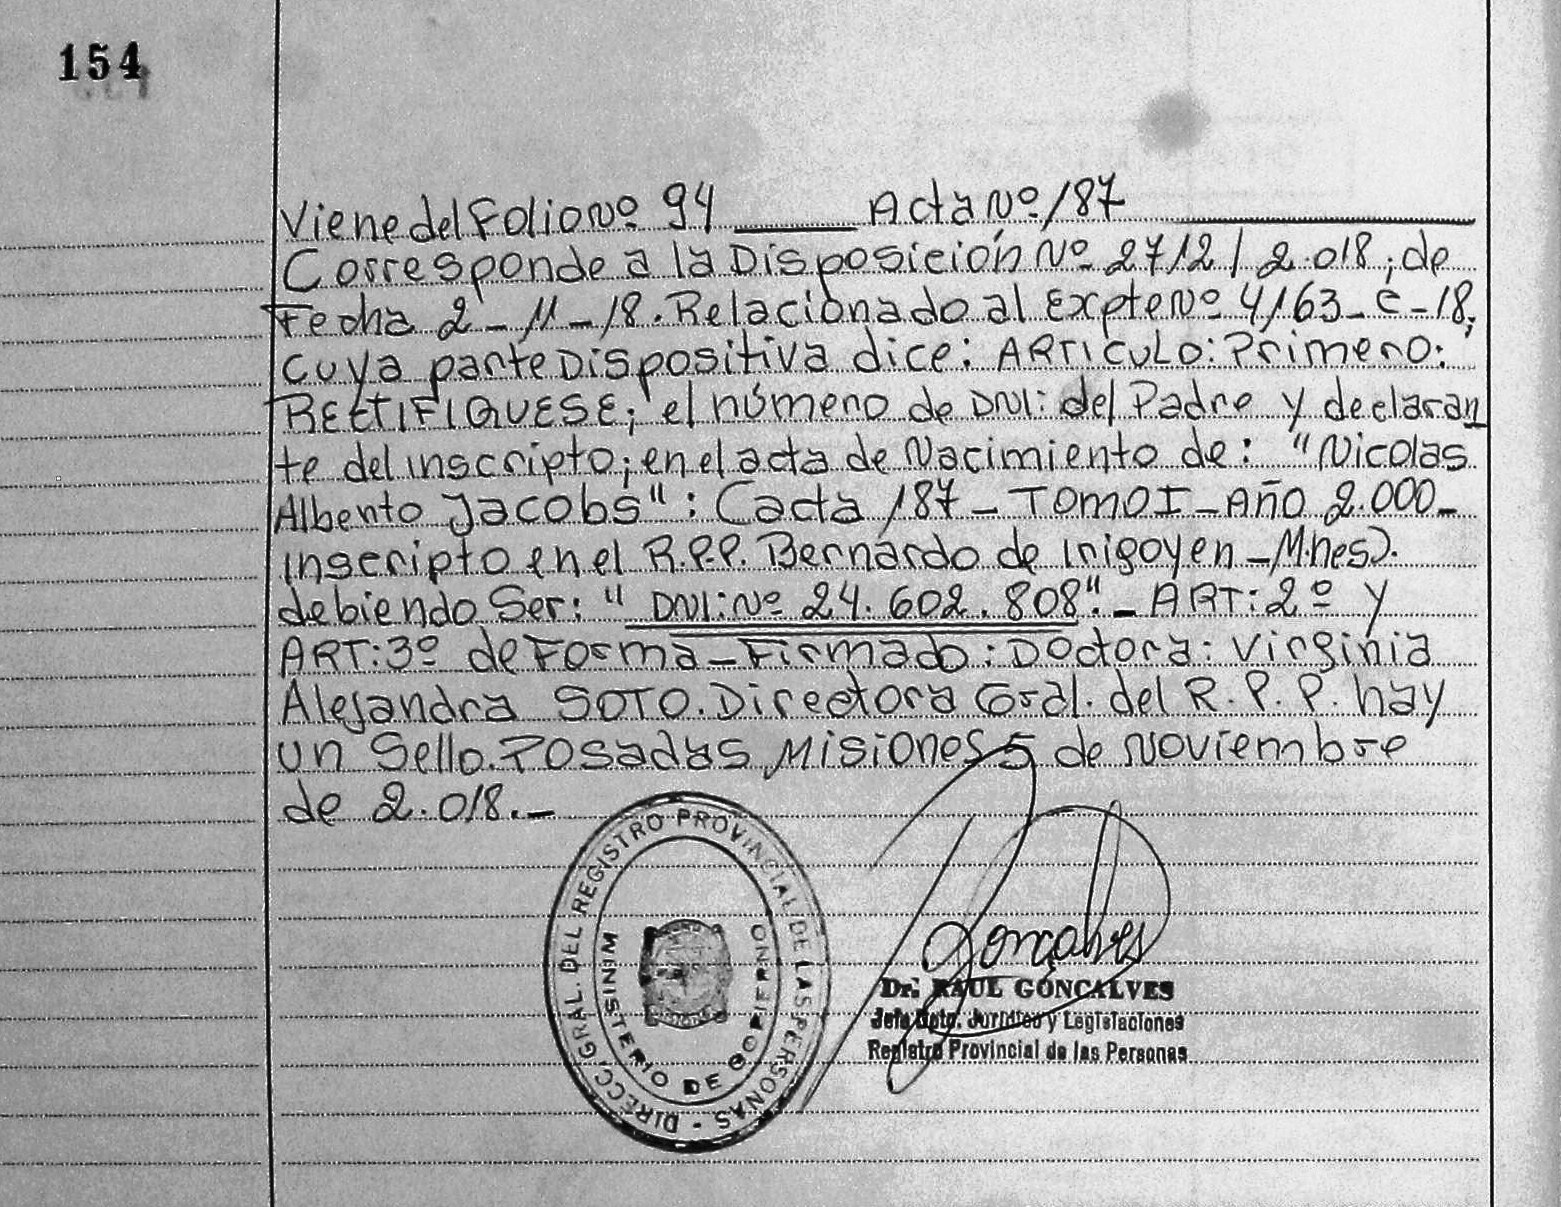 154
Viene del Folio Nº 94 ____ Acta Nº 187
Corresponde a la Disposición Nº 2712/2.018; de
Fecha 2-11-18. Relacionado al Expte Nº 4163-C-18;
cuya parte Dispositiva dice: ARTICULO: Primero:
RECTIFIQUESE; el número de DNI: del Padre y declaran
te del inscripto; en el acta de Nacimiento de: "Nicolas
Alberto Jacobs": (acta 187 - TOMO I - Año 2.000-
inscripto en el R.P.P. Bernardo de Irigoyen - M.nes).
debiendo Ser: " DNI: Nº 24.602.808". - ART: 2º y
ART: 3º de Forma - Firmado: Doctora: Virginia
Alejandra SOTO. Directora Gral. del R.P.P. hay
un Sello. Posadas, Misiones 5 de Noviembre
de 2.018.-
DIRECC. GRAL. DEL REGISTRO PROVINCIAL DE LAS PERSONAS -
MINISTERIO DE GOBIERNO
Gonçalves
Dr. RAUL GONCALVES
Jefe Dpto. Jurídico y Legislaciones
Registro Provincial de las Personas